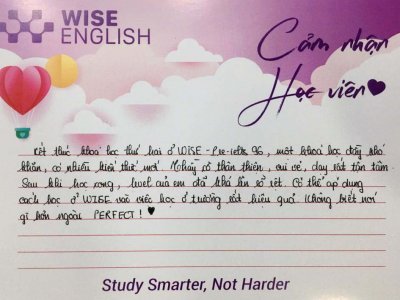 WISE
ENGLISH
Cảm nhận
Học viên
Kết thúc khoá học thứ hai ở WISE - Pre-ielts 96, một khoá học đầy khó
khăn, có nhiều kiến thức mới. Nhưng cô thân thiện, vui vẻ, dạy rất tận tâm.
Sau khi học xong, level của em đã khá lên rõ rệt. Có thể áp dụng
cách học ở WISE vào việc học ở trường rất hiệu quả. Không biết nói
gì hơn ngoài PERFECT!
Study Smarter, Not Harder